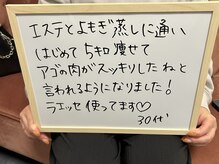 エステとよもぎ蒸しに通い
はじめて5キロ痩せて
アゴの肉がスッキリしたねと
言われるようになりました！
ラエッセ使ってます♡
30代